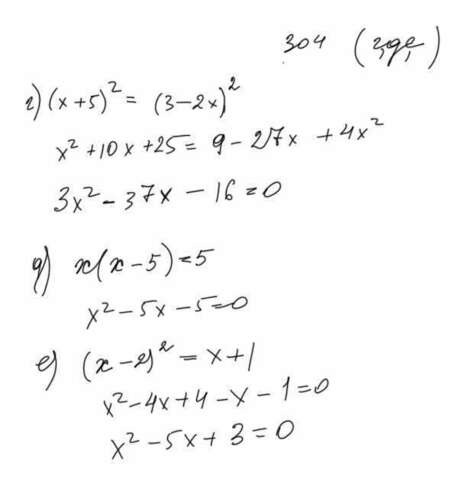 304 (г, д, е,)
г) (x+5)² = (3−2x)²
x² + 10x + 25 = 9 − 27x + 4x²
3x² − 37x − 16 = 0
д) x(x − 5) = 5
x² − 5x − 5 = 0
е) (x − 2)² = x + 1
x² − 4x + 4 − x − 1 = 0
x² − 5x + 3 = 0